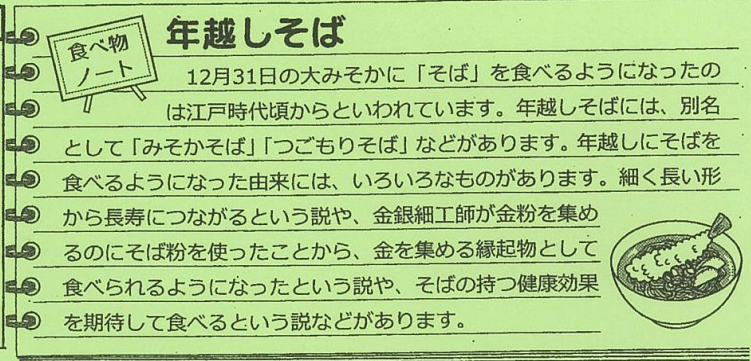 食べ物
ノート
年越しそば
12月31日の大みそかに「そば」を食べるようになったの
は江戸時代頃からといわれています。年越しそばには、別名
として「みそかそば」「つごもりそば」などがあります。年越しにそばを
食べるようになった由来には、いろいろなものがあります。細く長い形
から長寿につながるという説や、金銀細工師が金粉を集め
るのにそば粉を使ったことから、金を集める縁起物として
食べられるようになったという説や、そばの持つ健康効果
を期待して食べるという説などがあります。